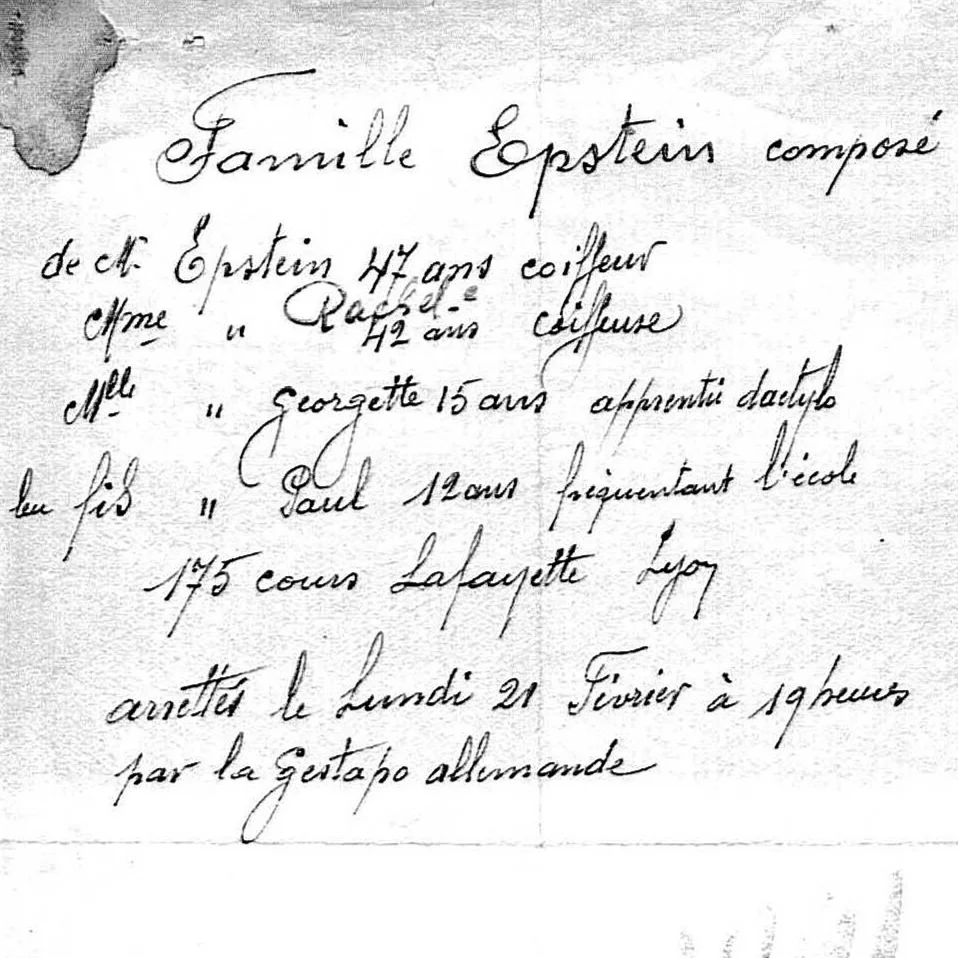 Famille Epstein composé
de M. Epstein 47 ans coiffeur
Mme " Rachel 42 ans coiffeuse
Mlle " Georgette 15 ans apprentie dactylo
leu fils " Paul 12 ans fréquentant l'école
175 cours Lafayette Lyon
arrettés le Lundi 21 Février à 19 heures
par la Gestapo allemande